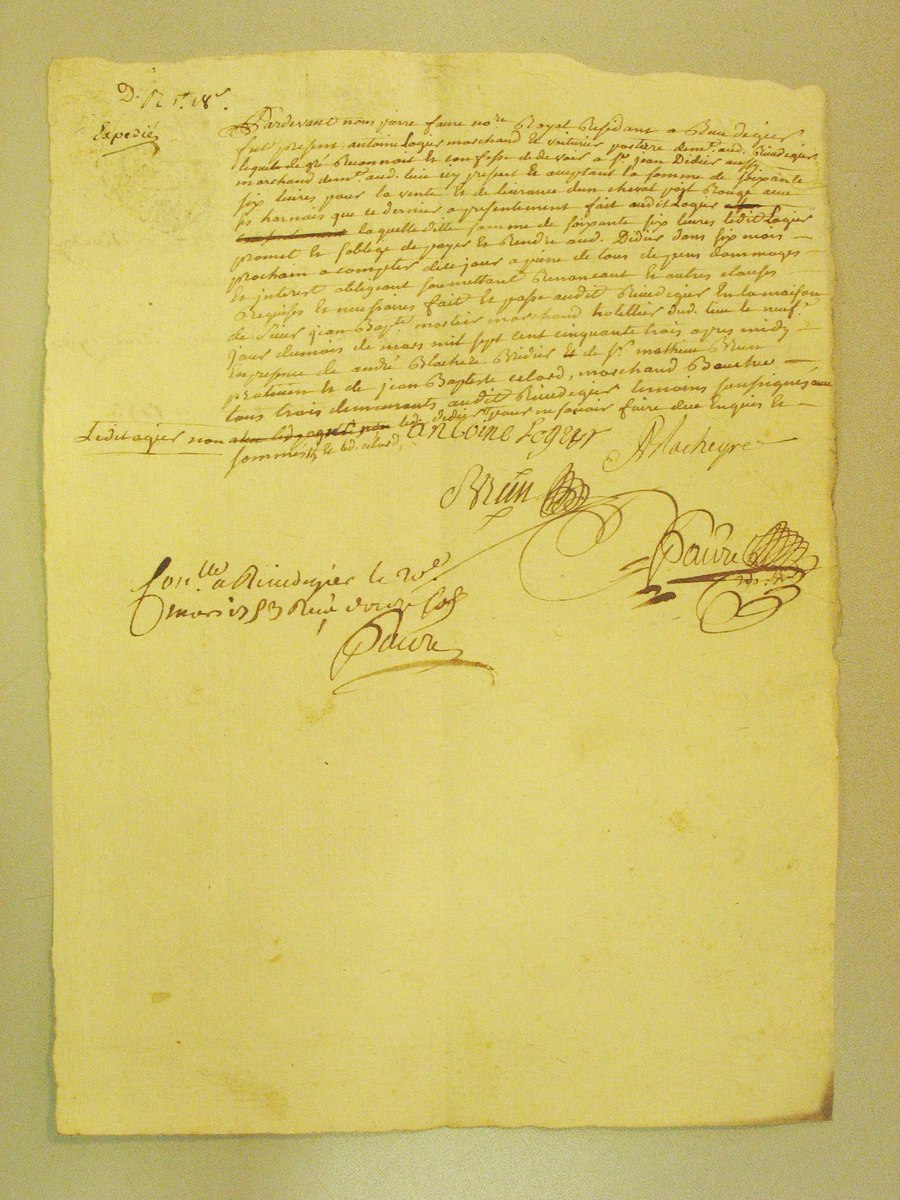 Expedié
Pardevant nous pierre faure no.re Royal Residant a
fut present antoine Lagier marchand et voiturier demt. aud.
lequel de gré Reconnoit et confesse de devoir a Sr. jean Didier aussy
marchand demt. aud. lieu icy present et acceptant la somme de soixante
six livres pour la vente et delivrance dun cheval poil Rouge avec
ses harnais que ce dernier a presentement fait audit Lagier
laquelle ditte somme de soixante six livres ledit Lagier
promet et soblige de payer et Rendre aud. Didier dans six mois
prochain a compter de ce jour a peine de tous depens dommages
et interest obligeant soumettant Renoncant et autres clauses
Requises et necessaires fait et passé audit En la maison
de Sieur jean Bapte. mortier marchand hotellier dud. lieu le neufe.
jour du mois de mars mil sept cent cinquante trois apres midy
En presence de andré Blacheyre et de Sr. mathieu Brun
praticien et de jean Baptiste celard, marchand
tous trois demeurants audit temoins soussignés avec
Ledit Lagier non led. didier pour ne scavoir faire de ce Enquis et
sommés ny le d. celard,
antoine Legier
ABlacheyre
Brun
Faure
mars 1753 Reçu douze sols
Faure